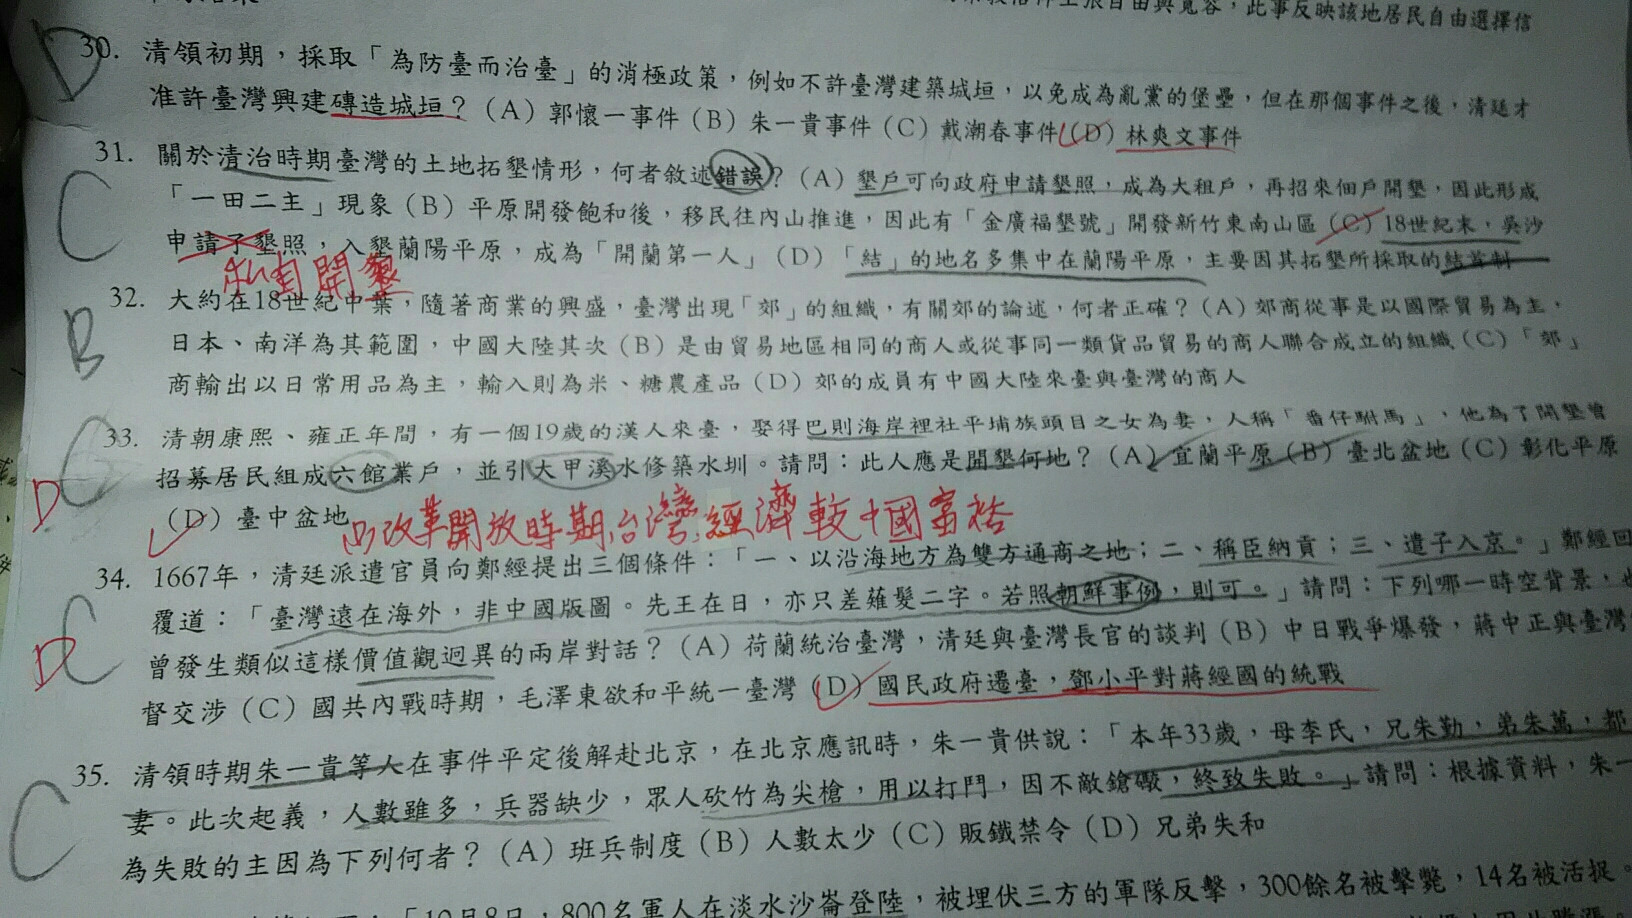 此事反映該地居民自由選擇信
D 30. 清領初期，採取「為防臺而治臺」的消極政策，例如不許臺灣建築城垣，以免成為亂黨的堡壘，但在那個事件之後，清廷才
准許臺灣興建磚造城垣？（A）郭懷一事件（B）朱一貴事件（C）戴潮春事件（D）林爽文事件
31. 關於清治時期臺灣的土地拓墾情形，何者敘述錯誤？（A）墾戶可向政府申請墾照，成為大租戶，再招來佃戶開墾，因此形成
C 「一田二主」現象（B）平原開發飽和後，移民往內山推進，因此有「金廣福墾號」開發新竹東南山區（C）18世紀末，吳沙
申請了墾照，入墾蘭陽平原，成為「開蘭第一人」（D）「結」的地名多集中在蘭陽平原，主要因其拓墾所採取的結首制
私自開墾
32. 大約在18世紀中葉，隨著商業的興盛，臺灣出現「郊」的組織，有關郊的論述，何者正確？（A）郊商從事是以國際貿易為主，
B 日本、南洋為其範圍，中國大陸其次（B）是由貿易地區相同的商人或從事同一類貨品貿易的商人聯合成立的組織（C）「郊」
商輸出以日常用品為主，輸入則為米、糖農產品（D）郊的成員有中國大陸來臺與臺灣的商人
C 33. 清朝康熙、雍正年間，有一個19歲的漢人來臺，娶得巴則海岸裡社平埔族頭目之女為妻，人稱「番仔駙馬」，他為了開墾曾
D 招募居民組成六館業戶，並引大甲溪水修築水圳。請問：此人應是開墾何地？（A）宜蘭平原（B）臺北盆地（C）彰化平原
（D）臺中盆地
改革開放時期，台灣經濟較中國富裕
34. 1667年，清廷派遣官員向鄭經提出三個條件：「一、以沿海地方為雙方通商之地；二、稱臣納貢；三、遣子入京。」鄭經回
C 覆道：「臺灣遠在海外，非中國版圖。先王在日，亦只差薙髮二字。若照朝鮮事例，則可。」請問：下列哪一時空背景，也
D 曾發生類似這樣價值觀迥異的兩岸對話？（A）荷蘭統治臺灣，清廷與臺灣長官的談判（B）中日戰爭爆發，蔣中正與臺灣
督交涉（C）國共內戰時期，毛澤東欲和平統一臺灣（D）國民政府遷臺，鄧小平對蔣經國的統戰
C 35. 清領時期朱一貴等人在事件平定後解赴北京，在北京應訊時，朱一貴供說：「本年33歲，母李氏，兄朱勤，弟朱萬，都
妻。此次起義，人數雖多，兵器缺少，眾人砍竹為尖槍，用以打鬥，因不敵鎗礮，終致失敗。」請問：根據資料，朱一
為失敗的主因為下列何者？（A）班兵制度（B）人數太少（C）販鐵禁令（D）兄弟失和
「10月8日，800名軍人在淡水沙崙登陸，被埋伏三方的軍隊反擊，300餘名被擊斃，14名被活捉。